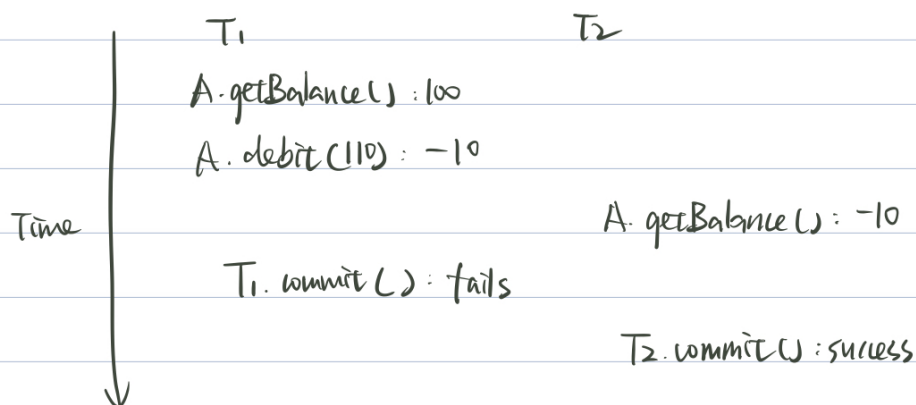 T1 T2
A.getBalance() : 100
A.debit(110) : -10
Time
A.getBalance() : -10
T1.commit() : fails
T2.commit() : success